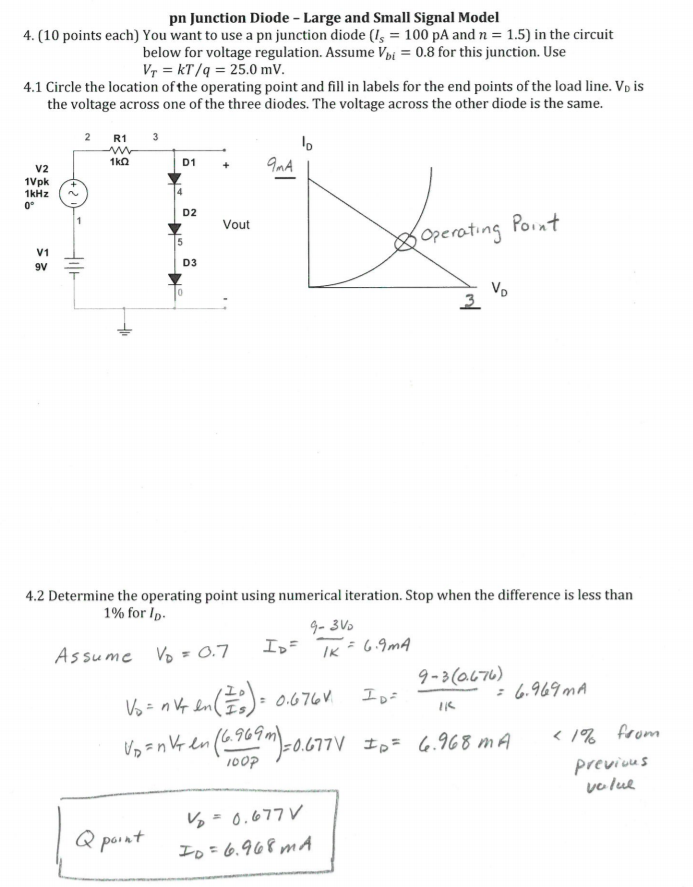 pn Junction Diode – Large and Small Signal Model
4. (10 points each) You want to use a pn junction diode (I_s = 100 pA and n = 1.5) in the circuit
below for voltage regulation. Assume V_bi = 0.8 for this junction. Use
V_T = kT/q = 25.0 mV.
4.1 Circle the location of the operating point and fill in labels for the end points of the load line. V_D is
the voltage across one of the three diodes. The voltage across the other diode is the same.
2 R1 3
1kΩ
V2
1Vpk
1kHz
0°
1
V1
9V
D1
4
D2
5
D3
0
+
Vout
-
I_D
9mA
Operating Point
3
V_D
4.2 Determine the operating point using numerical iteration. Stop when the difference is less than
1% for I_D.
Assume V_D = 0.7 I_D = (9-3V_D)/1K = 6.9mA
V_D = nV_T ln(I_D/I_S) = 0.676V I_D = (9-3(0.676))/1K = 6.969mA
V_D = nV_T ln(6.969m/100p) = 0.677V I_D = 6.968mA < 1% from
previous
value
V_D = 0.677V
Q point
I_D = 6.968mA